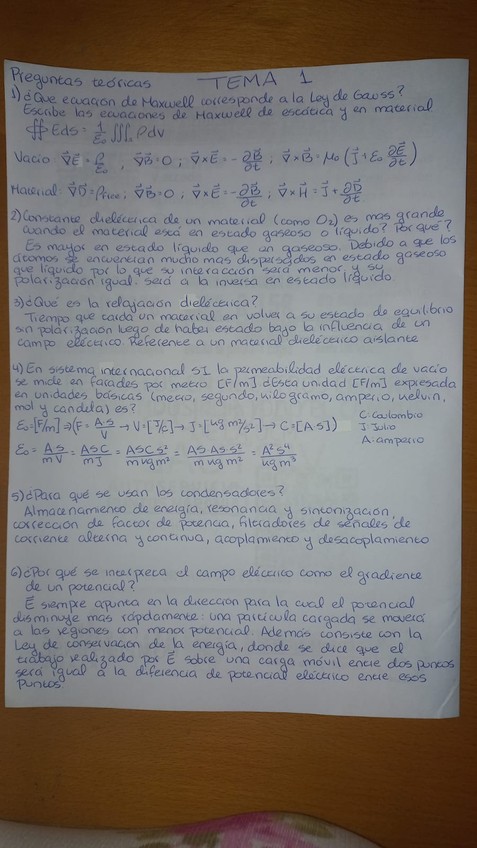 Preguntas teóricas TEMA 1
1) ¿Que ecuación de Maxwell corresponde a la Ley de Gauss?
Escribe las ecuaciones de Maxwell de estática y en material
∯ Eds = 1/ε₀ ∭ ρdv
Vacío ∇⃗E⃗ = ρ/ε₀ ; ∇⃗B⃗=0 ; ∇⃗×E⃗ = -∂B⃗/∂t ; ∇⃗×B⃗ = μ₀ (J⃗ + ε₀ ∂E⃗/∂t)
Material: ∇⃗D⃗=ρfree ; ∇⃗B⃗=0 ; ∇⃗×E⃗=-∂B⃗/∂t ; ∇⃗×H⃗=J⃗+∂D⃗/∂t
2) Constante dieléctrica de un material (como O₂) es mas grande
cuando el material está en estado gaseoso o líquido? Por qué?
Es mayor en estado líquido que en gaseoso. Debido a que los
átomos se encuentran mucho mas dispersados en estado gaseoso
que líquido por lo que su interacción será menor y su
polarización igual. será a la inversa en estado líquido
3) ¿Qué es la relajación dieléctrica?
Tiempo que tarda un material en volver a su estado de equilibrio
sin polarización luego de haber estado bajo la influencia de un
campo eléctrico. Referente a un material dieléctrico aislante
4) En sistema internacional SI la permeabilidad eléctrica de vacío
se mide en farades por metro [F/m] ¿Esta unidad [F/m] expresada
en unidades básicas (metro, segundo, kilogramo, amperio, kelvin,
mol y candela) es?
ε₀=[F/m] ⇒ (F = A·s/V → V=[J/C] → J=[kg m²/s²] → C=[A s])
C·Coulombio
J Julio
A·amperio
ε₀ = A s/m V = A s C/m J = A s C s²/m kg m² = A s A s s²/m kg m² = A² s⁴/kg m³
5) ¿Para qué se usan los condensadores?
Almacenamiento de energía, resonancia y sintonización,
corrección de factor de potencia, filtradores de señales de
corriente alterna y continua, acoplamiento y desacoplamiento
6) ¿Por qué se interpreta el campo eléctrico como el gradiente
de un potencial?
E⃗ siempre apunta en la dirección para la cual el potencial
disminuye mas rápidamente: una partícula cargada se moverá
a las regiones con menor potencial. Además consiste con la
Ley de conservación de la energía, donde se dice que el
trabajo realizado por E⃗ sobre una carga móvil entre dos puntos
será igual a la diferencia de potencial eléctrico entre esos
puntos